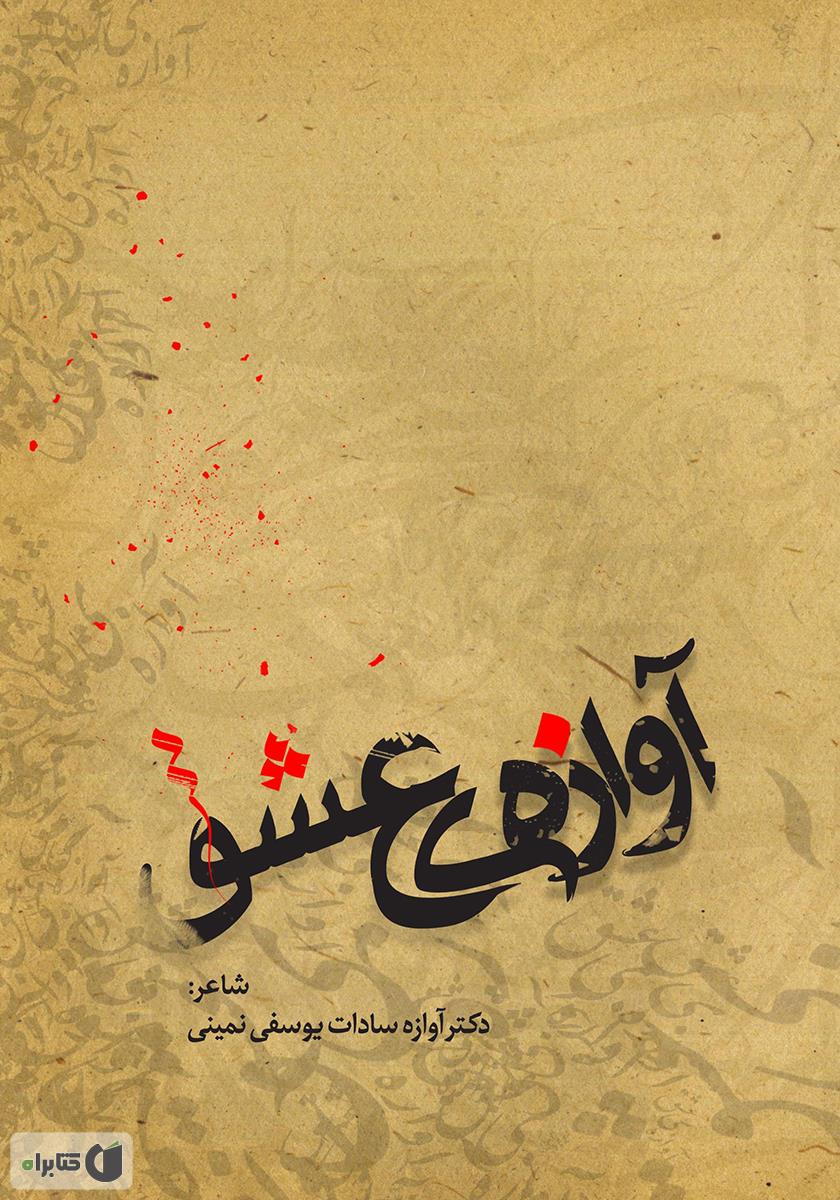 آوازه‌ی عشق
شاعر:
دکتر آوازه سادات یوسفی نمینی
کتابراه